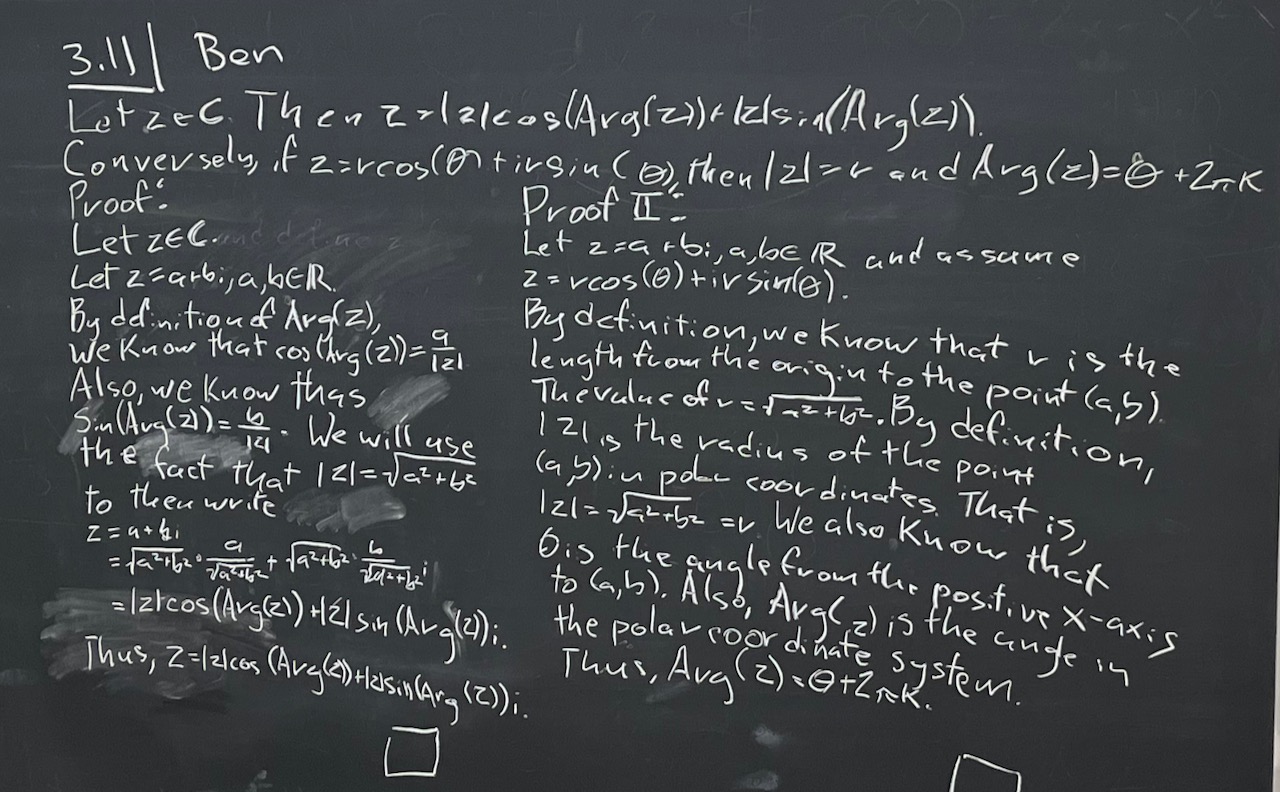 3.11 Ben
Let z∈C. Then z=|z|cos(Arg(z))+|z|sin(Arg(z)).
Conversely, if z=rcos(θ)+irsin(θ), then |z|=r and Arg(z)=θ+2πK
Proof:
Let z∈C.
Let z=a+bi, a,b∈R.
By definition of Arg(z),
we know that cos(Arg(z))=a/|z|
Also, we know thas
Sin(Arg(z))=b/|z|. We will use
the fact that |z|=√a²+b²
to then write
z=a+bi
=√a²+b²·a/√a²+b²+√a²+b²·b/√a²+b² i
=|z|cos(Arg(z))+|z|sin(Arg(z))i.
Thus, z=|z|cos(Arg(z))+|z|sin(Arg(z))i.
Proof II:
Let z=a+bi, a,b∈R and assume
z=rcos(θ)+irsin(θ).
By definition, we know that r is the
length from the origin to the point (a,b).
The value of r=√a²+b². By definition,
|z| is the radius of the point
(a,b) in polar coordinates. That is,
|z|=√a²+b²=r. We also know that
θ is the angle from the positive x-axis
to (a,b). Also, Arg(z) is the angle in
the polar coordinate system.
Thus, Arg(z)=θ+2πK.